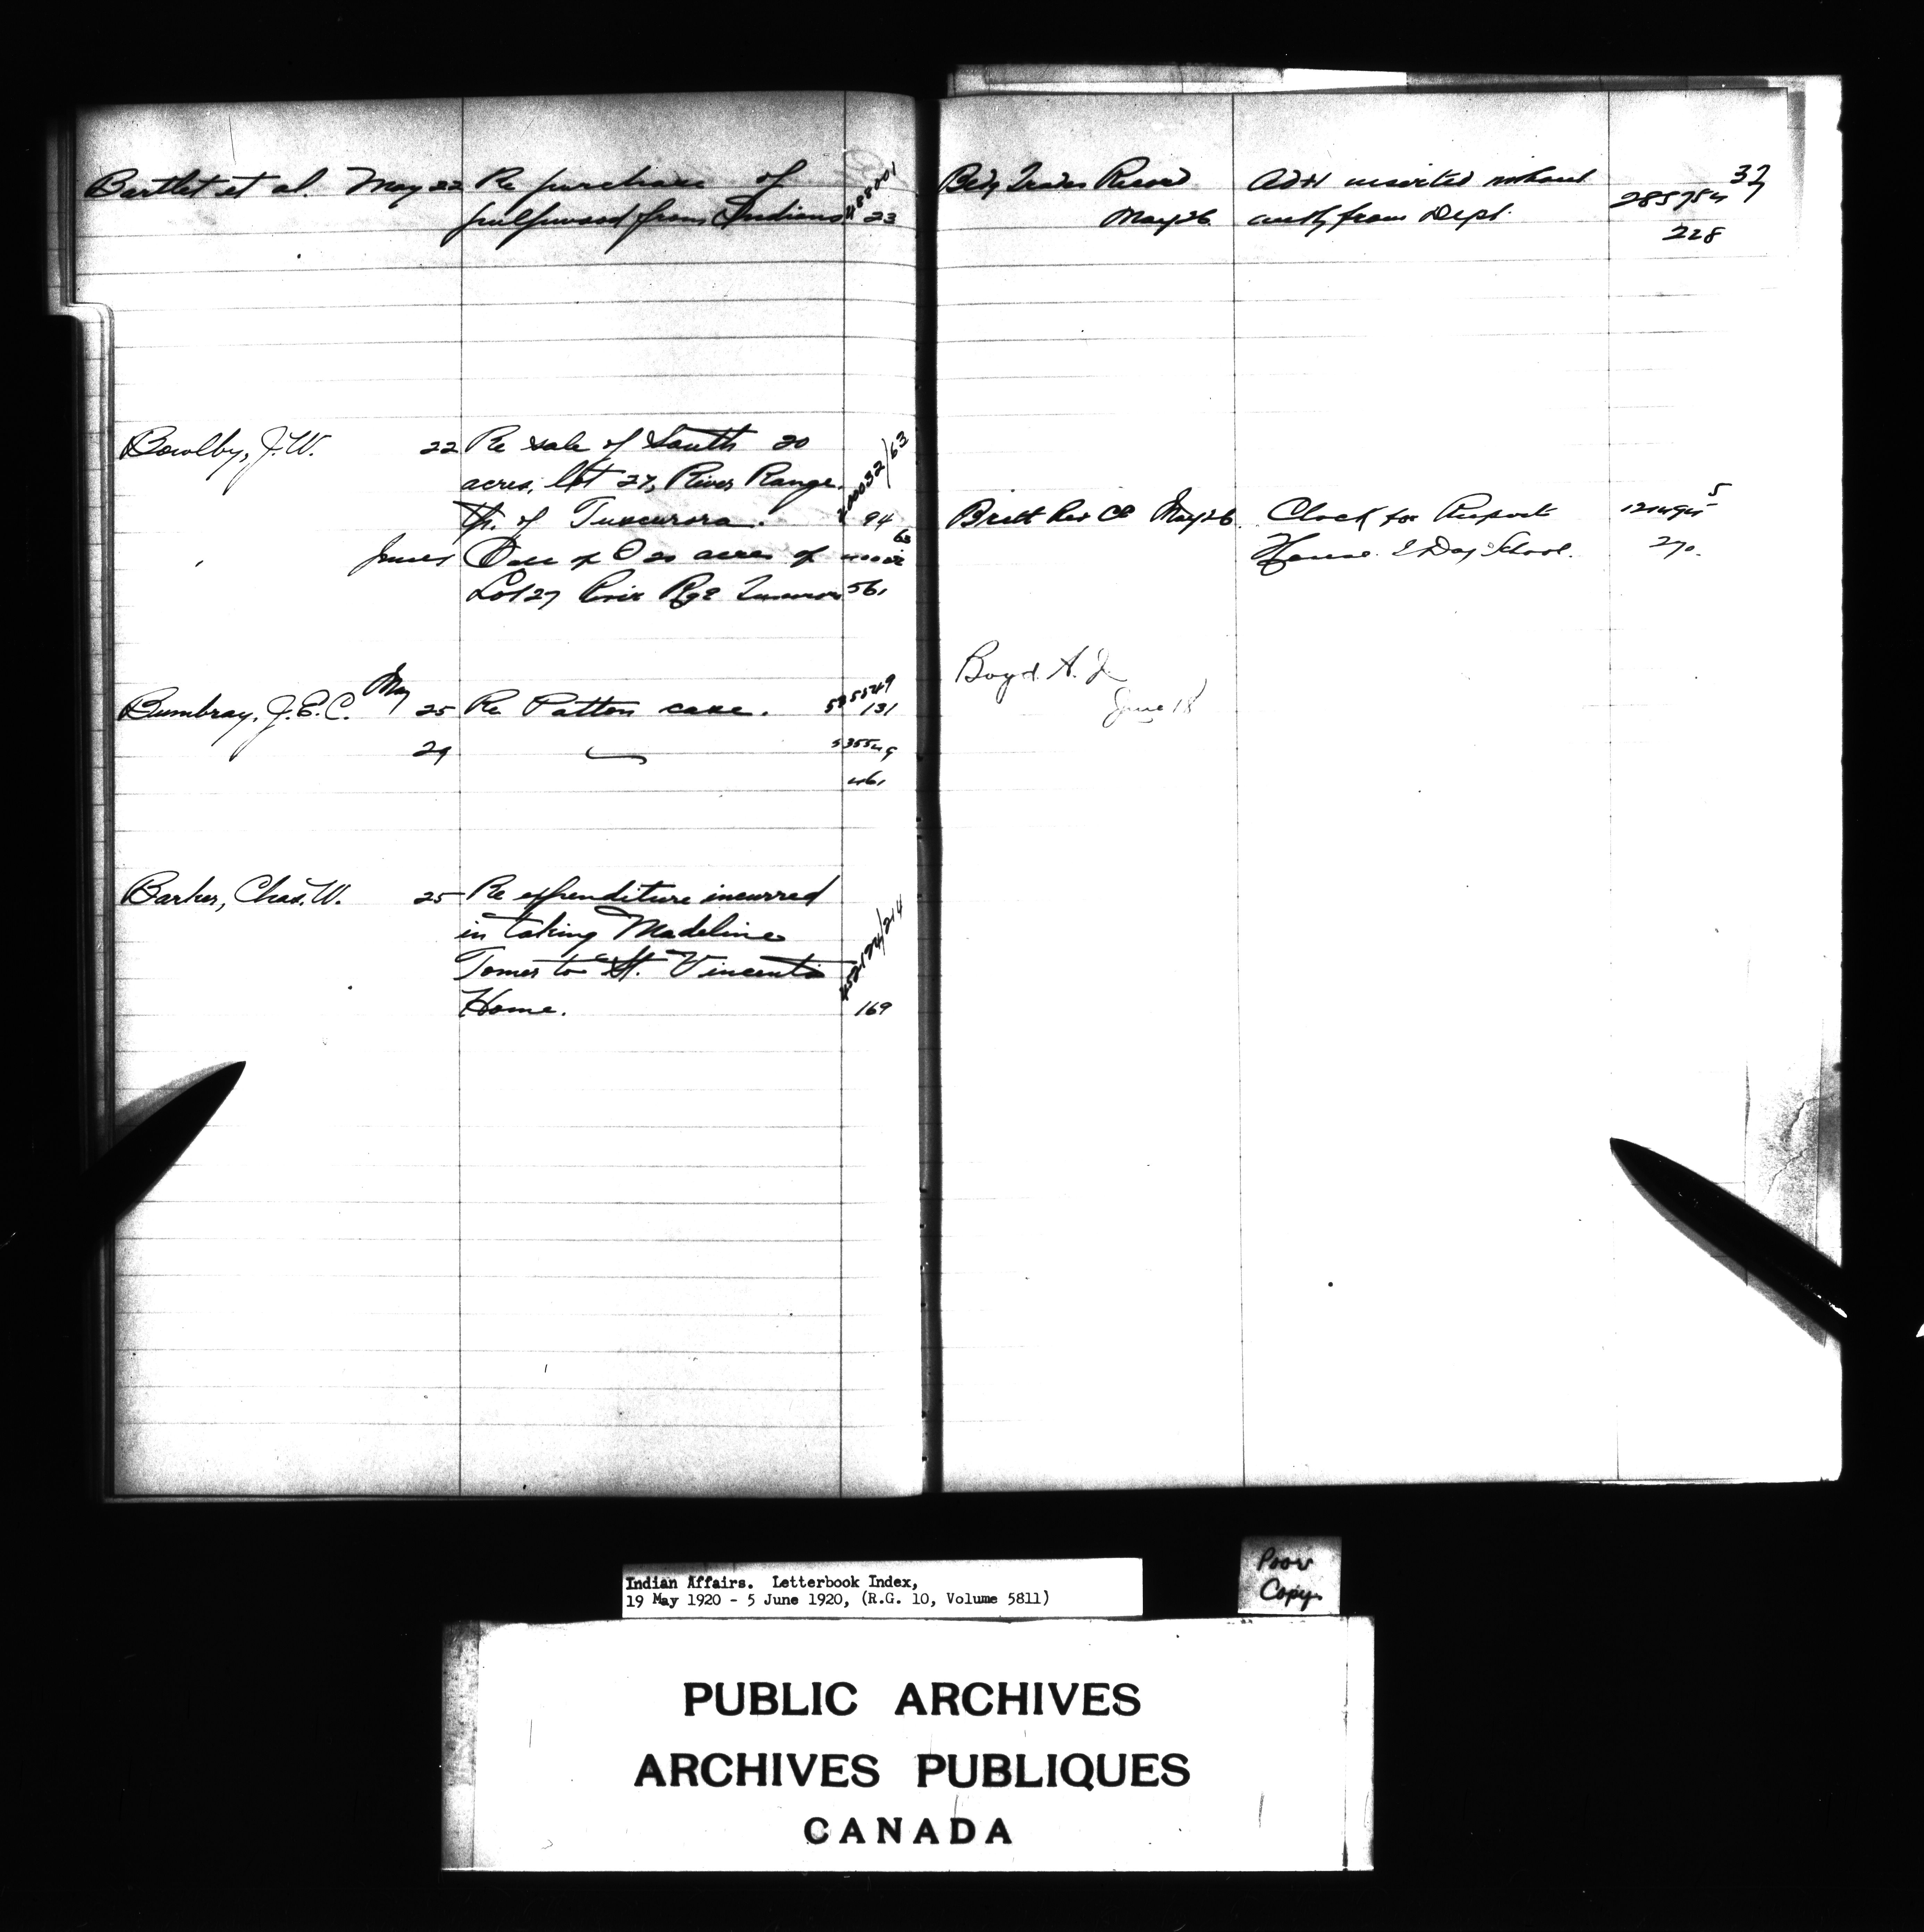 Bartlet et al. May 22 Re purchase of
pulpwood from Indians 23
Bowlby, J.W. 22 Re sale of South 20
acres, lot 27, River Range
Tp. of Tuscarora. 94
Sale of S 20 acres of
Lot 27 River Rge 561
May
Bumbray, J.E.C. 25 Re Patton case. 535549
131
29 535549
461
Barker, Chas. W. 25 Re expenditure incurred
in taking Madeline
Tomer to St. Vincent's
Home. 169
37
Bldg Trades Record Advt inserted without 285754
May 26 auth from Dept. 228
May 26 Clock for
House & Day School. 270
Boyd A. J.
June 18
Indian Affairs. Letterbook Index,
19 May 1920 - 5 June 1920, (R.G. 10, Volume 5811)
Poor
Copy
PUBLIC ARCHIVES
ARCHIVES PUBLIQUES
CANADA